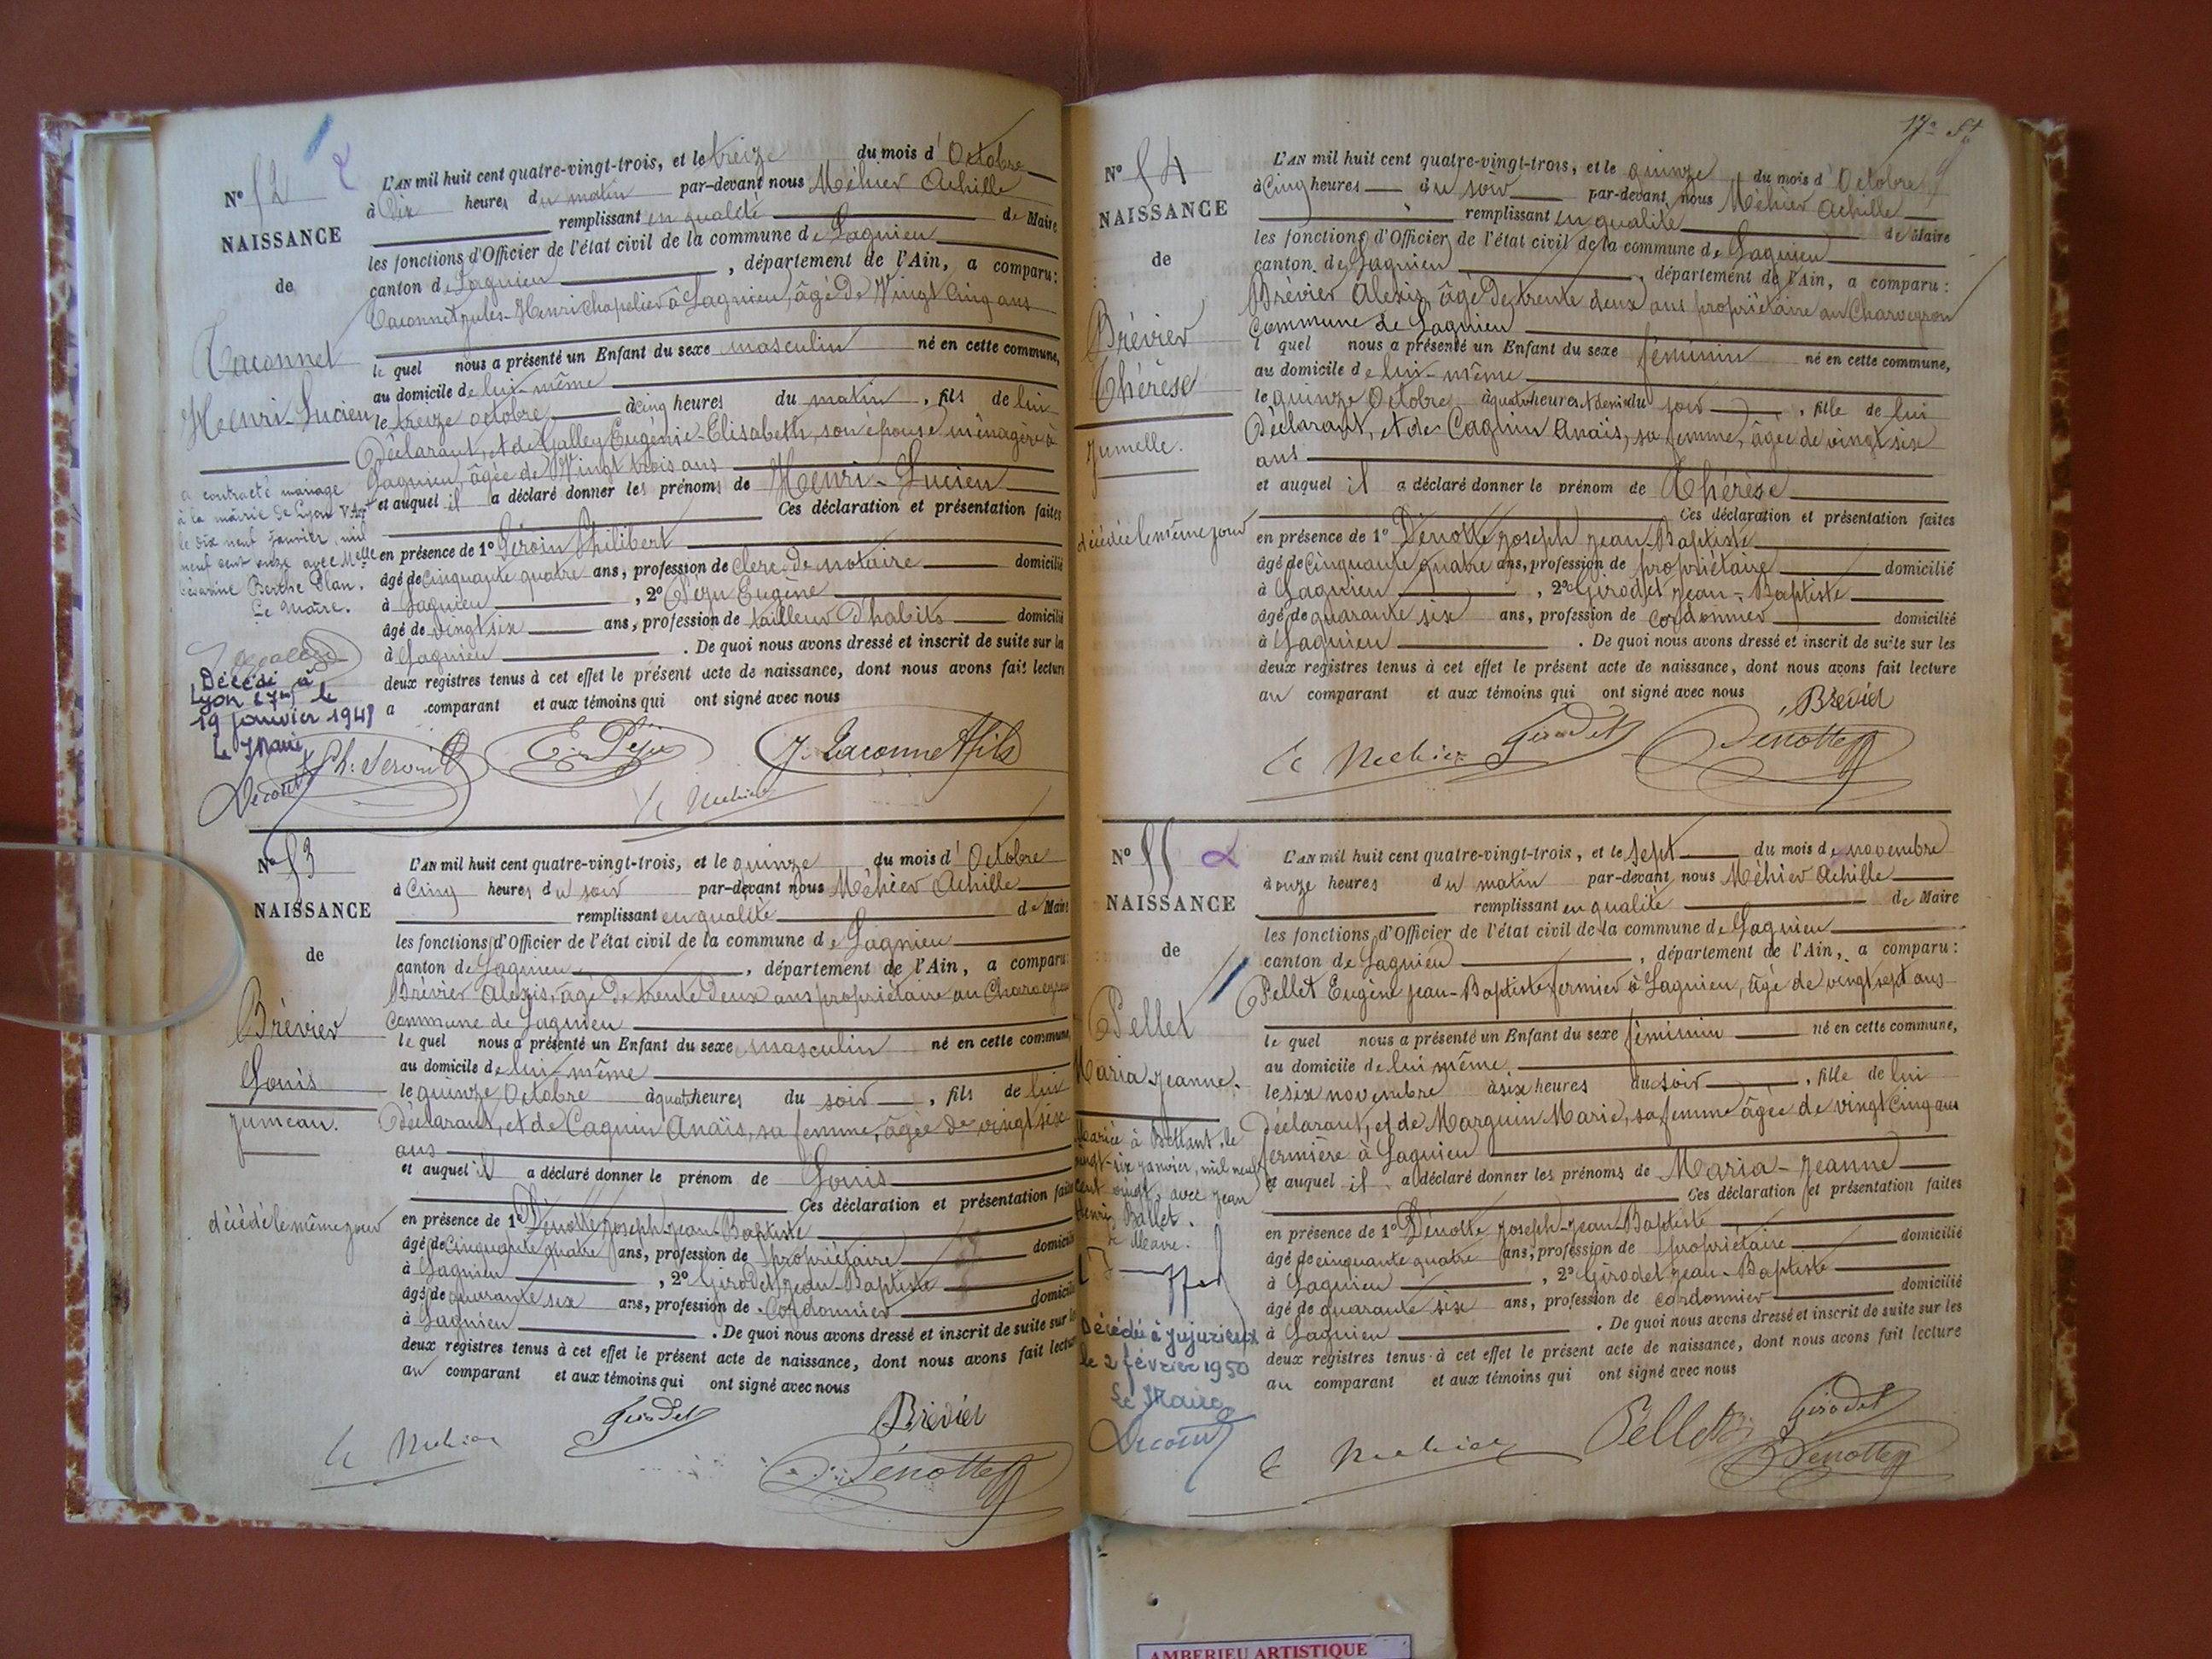 N° 52
NAISSANCE
de
Taconnet
Henri-Lucien
a contracté mariage
à la mairie de Lyon
le dix neuf janvier mil
neuf cent onze avec Melle
Césarine Berthe Plan.
Le Maire.
Décédé à
Lyon 7me le
19 janvier 1948
Le Maire
Decourt
L'AN mil huit cent quatre-vingt-trois, et le treize du mois d'Octobre
à Dix heures du matin par-devant nous Méhier Achille
remplissant en qualité de Maire
les fonctions d'Officier de l'état civil de la commune de Lagnieu
canton de Lagnieu, département de l'Ain, a comparu:
Taconnet Jules-Henri chapelier à Lagnieu, âgé de Vingt cinq ans
le quel nous a présenté un Enfant du sexe masculin né en cette commune,
au domicile de lui-même
le treize octobre à cinq heures du matin, fils de lui
Déclarant, et de Galley Eugénie-Elisabeth, son épouse ménagère à
Lagnieu, âgée de Vingt trois ans
et auquel il a déclaré donner les prénoms de Henri-Lucien
Ces déclaration et présentation faites
en présence de 1° Philibert
âgé de Cinquante quatre ans, profession de Clerc de notaire domicilié
à Lagnieu, 2° Péju Eugène
âgé de vingt six ans, profession de tailleur d'habits domicilié
à Lagnieu. De quoi nous avons dressé et inscrit de suite sur les
deux registres tenus à cet effet le présent acte de naissance, dont nous avons fait lecture
a comparant et aux témoins qui ont signé avec nous
E. Péju J. Taconnet fils
Méhier
N° 53
NAISSANCE
de
Brévier
Louis
jumeau.
décédé le même jour
L'AN mil huit cent quatre-vingt-trois, et le quinze du mois d'Octobre
à Cinq heures du soir par-devant nous Méhier Achille
remplissant en qualité de Maire
les fonctions d'Officier de l'état civil de la commune de Lagnieu
canton de Lagnieu, département de l'Ain, a comparu:
Brévier Alexis, âgé de trente deux ans propriétaire au Charveyron
Commune de Lagnieu
le quel nous a présenté un Enfant du sexe masculin né en cette commune,
au domicile de lui-même
le quinze Octobre à quatre heures du soir, fils de lui
déclarant, et de Cagnin Anaïs, sa femme, âgée de vingt six
ans
et auquel il a déclaré donner le prénom de Louis
Ces déclaration et présentation faites
en présence de 1° Dénotte Joseph-Jean-Baptiste
âgé de Cinquante quatre ans, profession de propriétaire domicilié
à Lagnieu, 2° Girodet Jean-Baptiste
âgé de quarante six ans, profession de Cordonnier domicilié
à Lagnieu. De quoi nous avons dressé et inscrit de suite sur les
deux registres tenus à cet effet le présent acte de naissance, dont nous avons fait lecture
au comparant et aux témoins qui ont signé avec nous
Méhier Girodet Brévier
Dénotte
17e
N° 54
NAISSANCE
de
Brévier
Thérèse
Jumelle.
décédée le même jour
L'AN mil huit cent quatre-vingt-trois, et le quinze du mois d'Octobre
à Cinq heures du soir par-devant nous Méhier Achille
remplissant en qualité de Maire
les fonctions d'Officier de l'état civil de la commune de Lagnieu
canton de Lagnieu, département de l'Ain, a comparu:
Brévier Alexis, âgé de trente deux ans propriétaire au Charveyron
Commune de Lagnieu
le quel nous a présenté un Enfant du sexe féminin né en cette commune,
au domicile de lui-même
le quinze Octobre à quatre heures et demie du soir, fille de lui
Déclarant, et de Cagnin Anaïs, sa femme, âgée de vingt six
ans
et auquel il a déclaré donner le prénom de Thérèse
Ces déclaration et présentation faites
en présence de 1° Dénotte Joseph Jean-Baptiste
âgé de Cinquante quatre ans, profession de propriétaire domicilié
à Lagnieu, 2° Girodet Jean-Baptiste
âgé de quarante six ans, profession de cordonnier domicilié
à Lagnieu. De quoi nous avons dressé et inscrit de suite sur les
deux registres tenus à cet effet le présent acte de naissance, dont nous avons fait lecture
au comparant et aux témoins qui ont signé avec nous
Brévier
Méhier Girodet Dénotte
N° 55
NAISSANCE
de
Pellet
Maria Jeanne.
Mariée à Bettant, le
vingt-six janvier, mil neuf
cent vingt, avec Jean
Henri Ballet.
Le Maire.
Décédée à Jujurieux
le 2 février 1950
Le Maire
Decourt
L'AN mil huit cent quatre-vingt-trois, et le Sept du mois de novembre
à onze heures du matin par-devant nous Méhier Achille
remplissant en qualité de Maire
les fonctions d'Officier de l'état civil de la commune de Lagnieu
canton de Lagnieu, département de l'Ain, a comparu:
Pellet Eugène Jean-Baptiste fermier à Lagnieu, âgé de vingt sept ans
le quel nous a présenté un Enfant du sexe féminin né en cette commune,
au domicile de lui même
le six novembre à six heures du soir, fille de lui
déclarant, et de Marguin Marie, sa femme âgée de vingt Cinq ans
fermière à Lagnieu
et auquel il a déclaré donner les prénoms de Maria-Jeanne
Ces déclaration et présentation faites
en présence de 1° Dénotte Joseph-Jean-Baptiste
âgé de cinquante quatre ans, profession de propriétaire domicilié
à Lagnieu, 2° Girodet Jean-Baptiste
âgé de quarante six ans, profession de cordonnier domicilié
à Lagnieu. De quoi nous avons dressé et inscrit de suite sur les
deux registres tenus à cet effet le présent acte de naissance, dont nous avons fait lecture
au comparant et aux témoins qui ont signé avec nous
Méhier Pellet Girodet
Dénotte
AMBERIEU ARTISTIQUE